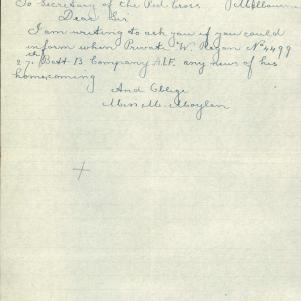 To Secretary of the Red Cross Melbourne
Dear Sir
I am writing to ask you if you could
inform when Private W. Regan No 4499
27th Batt B Company A.I.F. any news of his
homecoming
And Oblige
Miss M. Moylan